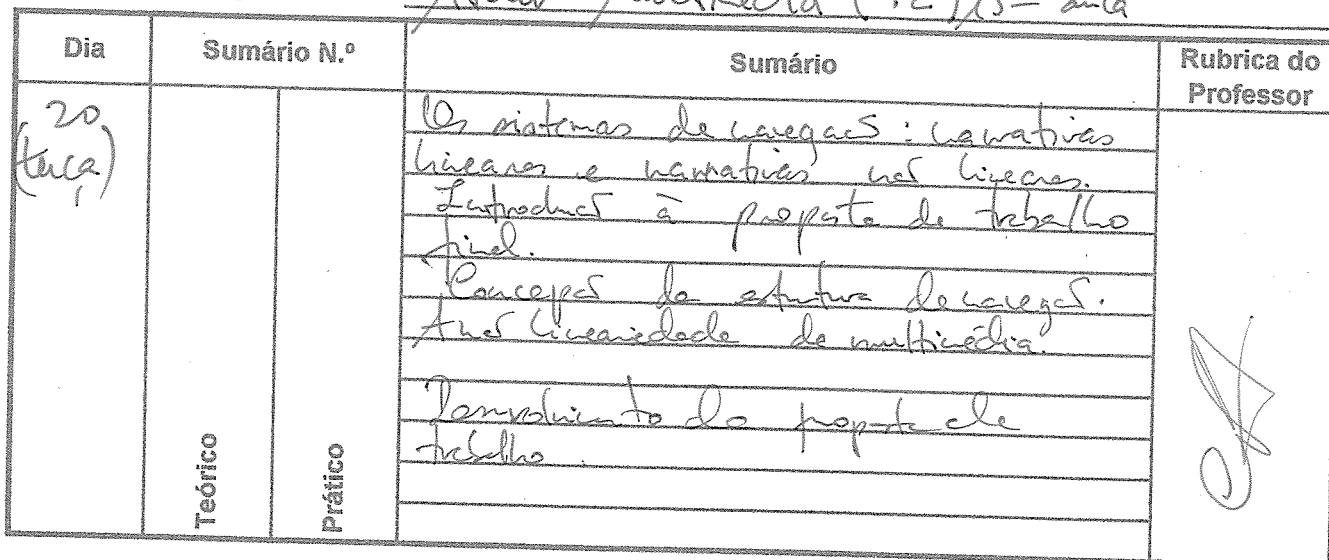 aula
Dia Sumário N.º Sumário Rubrica do Professor
20 (terça)
Os sistemas de navegação: narrativas
lineares e narrativas não lineares.
Introdução à proposta de trabalho
final.
Concepção da estrutura de navegação.
A não linearidade do multimédia.
Desenvolvimento da proposta de
trabalho.
Teórico
Prático